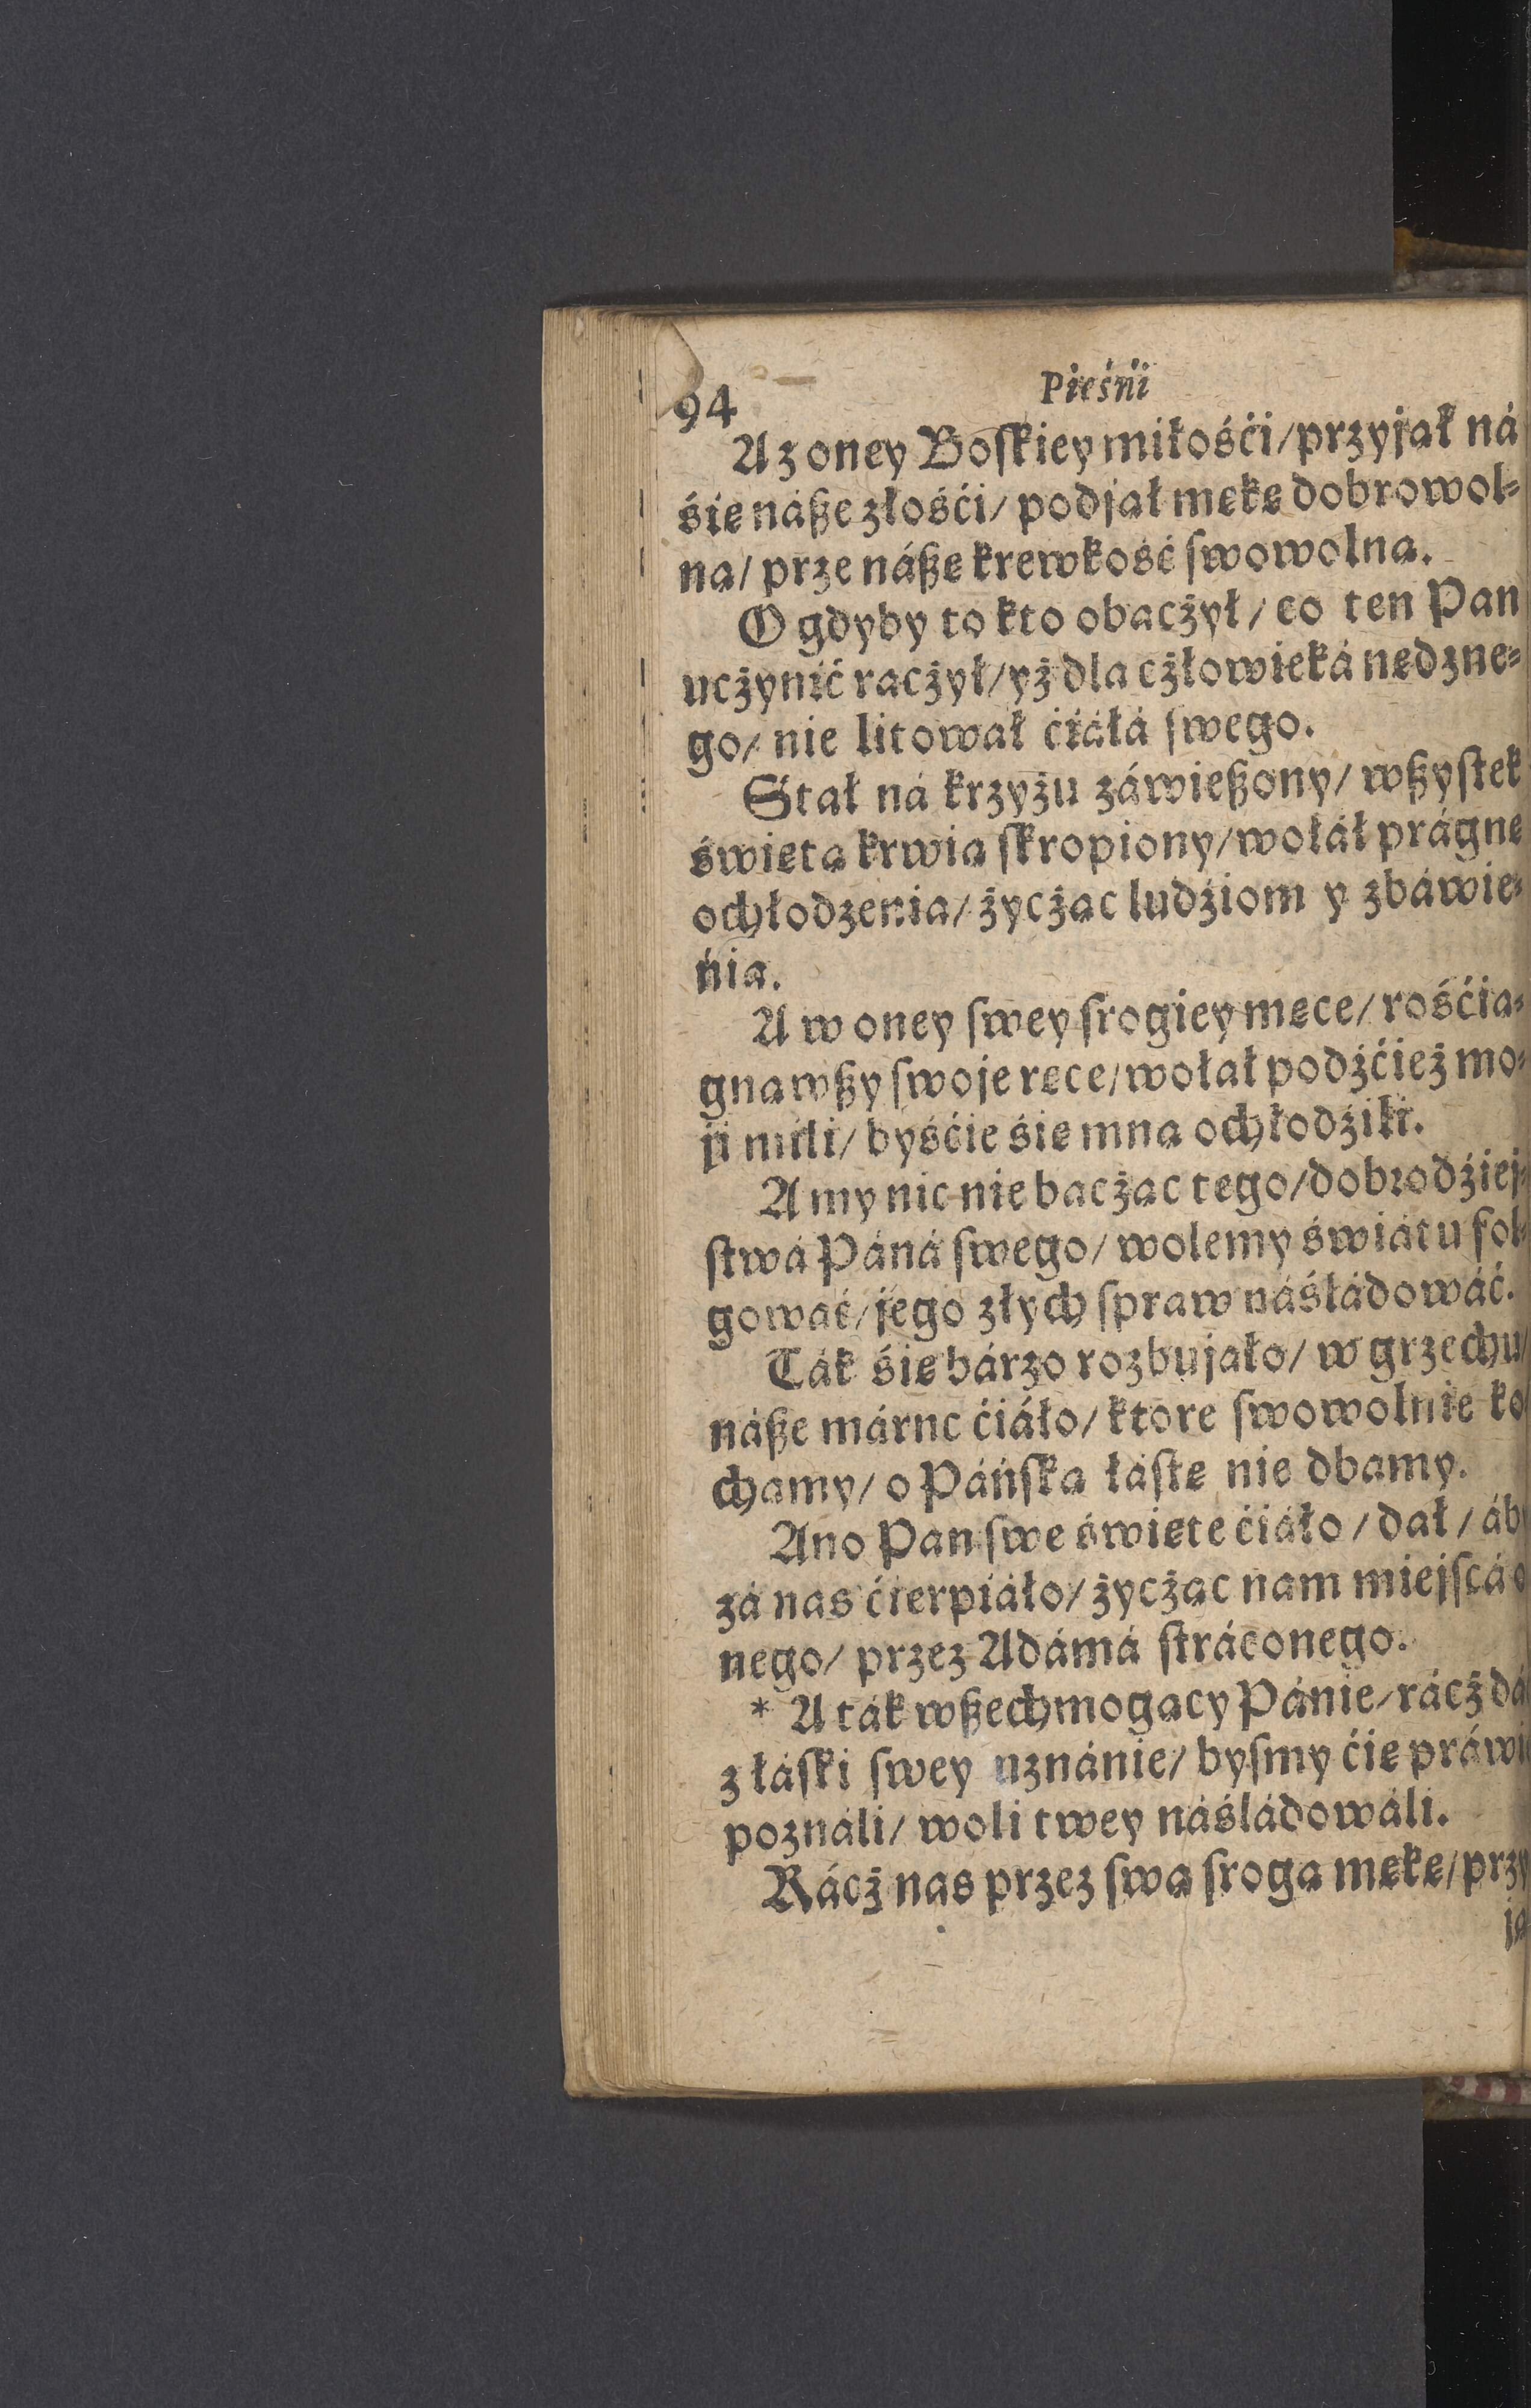 94
Pieśńi
A z oney Boſkiey miłośći/ przyjął ná
śię náße złośći/ podjął mękę dobrowol⸗
ną/ prze náßę krewkość ſwowolną.
O gdyby to kto obacżył/ co ten Pan
ucżynić racżył/ yż dla cżłowieká nędzne⸗
go/ nie litował ćiáłá ſwego.
Stał ná krzyżu záwießony/ wßyſtek
świętą krwią ſkropiony/ wołáł prágnę
ochłodzenia/ życżąc ludźiom y zbáwie⸗
nia.
A w oney ſwey ſrogiey męce/ rośćią⸗
gnąwßy ſwoje ręce/ wołał podźćież mo⸗
ji mili/ byśćie śię mną ochłodźili.
A my nic nie bacżąc tego/ dobrodźiej⸗
ſtwá Páná ſwego/ wolemy świátu fol⸗
gowáć/ jego złych ſpraw náśládowáć.
Ták śię bárzo rozbujało/ w grzechu/
náße márne ćiáło/ ktore ſwowolnie ko
chamy/ o Páńſką łáſkę nie dbamy.
Ano Pan ſwe święte ćiáło/ dał/ áby
zá nas ćierpiáło/ życżąc nam miejſcá o
nego/ przez Adámá ſtráconego.
* A ták wßechmogący Pánie/ rácż dá
z łáſki ſwey uznánie/ byſmy ćię práwi
poználi/ woli twey náśládowáli.
Rácż nas przez ſwą ſrogą mękę/ przy
ją